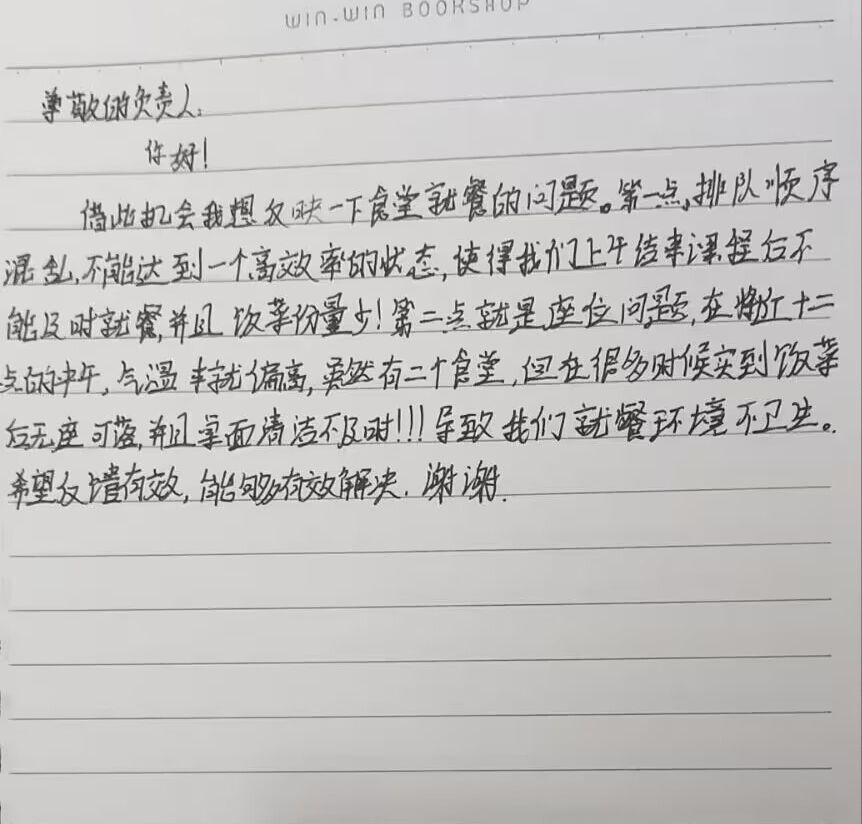 WIN-WIN BOOKSHOP
尊敬的负责人:
你好!
借此机会我想反映一下食堂就餐的问题。第一点,排队顺序
混乱,不能达到一个高效率的状态,使得我们上午结束课程后不
能及时就餐,并且饭菜份量少!第二点就是座位问题,在将近十二
点的中午,气温本就偏高,虽然有二个食堂,但在很多时候买到饭菜
后无座可落,并且桌面清洁不及时!!!导致我们就餐环境不卫生。
希望反馈有效,能够有效解决.谢谢.